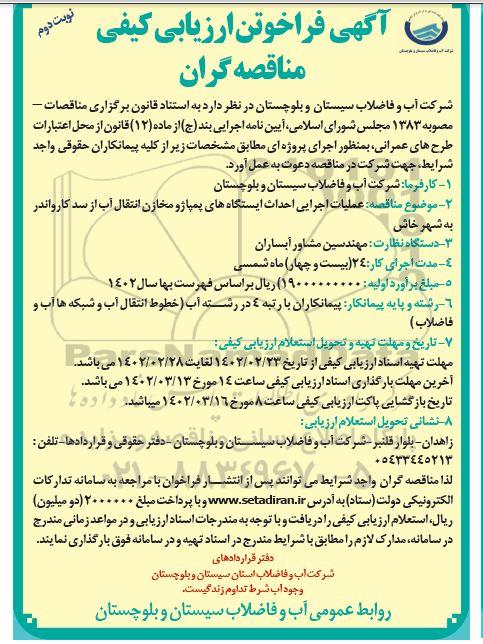 نوبت دوم
آگهی فراخوتن ارزیابی کیفی
مناقصه گران
شرکت آب و فاضلاب سیستان و بلوچستان
شرکت آب و فاضلاب سیستان و بلوچستان در نظر دارد به استناد قانون برگزاری مناقصات –
مصوبه ۱۳۸۳ مجلس شورای اسلامی، آیین نامه اجرایی بند (ج) از ماده (۱۲) قانون از محل اعتبارات
طرح های عمرانی، بمنظور اجرای پروژه ای مطابق مشخصات زیر از کلیه پیمانکاران حقوقی واجد
شرایط، جهت شرکت در مناقصه دعوت به عمل آورد.
۱- کارفرما: شرکت آب و فاضلاب سیستان و بلوچستان
۲- موضوع مناقصه: عملیات اجرایی احداث ایستگاه های پمپاژ و مخازن انتقال آب از سد کارواندر
به شهر خاش
۳- دستگاه نظارت: مهندسین مشاور آبساران
۴- مدت اجرای کار: ۲۴ (بیست و چهار) ماه شمسی
۵- مبلغ برآورد اولیه: (۱۹۰۰۰۰۰۰۰۰۰۰) ریال بر اساس فهرست بها سال ۱۴۰۲
۶- رشته و پایه پیمانکار: پیمانکاران با رتبه ۴ در رشته آب (خطوط انتقال آب و شبکه ها آب و
فاضلاب)
۷- تاریخ و مهلت تهیه و تحویل استعلام ارزیابی کیفی:
مهلت تهیه اسناد ارزیابی کیفی از تاریخ ۱۴۰۲/۰۲/۲۳ لغایت ۱۴۰۲/۰۲/۲۸ می باشد.
آخرین مهلت بارگذاری اسناد ارزیابی کیفی ساعت ۱۴ مورخ ۱۴۰۲/۰۳/۱۳ می باشد.
تاریخ بازگشایی پاکت ارزیابی کیفی ساعت ۸ مورخ ۱۴۰۲/۰۳/۱۶ میباشد.
۸- نشانی تحویل استعلام ارزیابی:
زاهدان- بلوار قلنبر- شرکت آب و فاضلاب سیستان و بلوچستان- دفتر حقوقی و قراردادها- تلفن:
۰۵۴۳۳۴۴۵۲۱۳
لذا مناقصه گران واجد شرایط می توانند پس از انتشار فراخوان با مراجعه به سامانه تدارکات
الکترونیکی دولت (ستاد) به آدرس www.setadiran.ir و با پرداخت مبلغ ۲۰۰۰۰۰۰ (دو میلیون)
ریال، استعلام ارزیابی کیفی را دریافت و با توجه به مندرجات اسناد ارزیابی و در مواعد زمانی مندرج
در سامانه، مدارک لازم را مطابق با شرایط مندرج در اسناد تهیه و در سامانه فوق بارگذاری نمایند.
دفتر قراردادهای
شرکت آب و فاضلاب استان سیستان و بلوچستان
وجود آب شرط تداوم زندگیست.
روابط عمومی آب و فاضلاب سیستان و بلوچستان